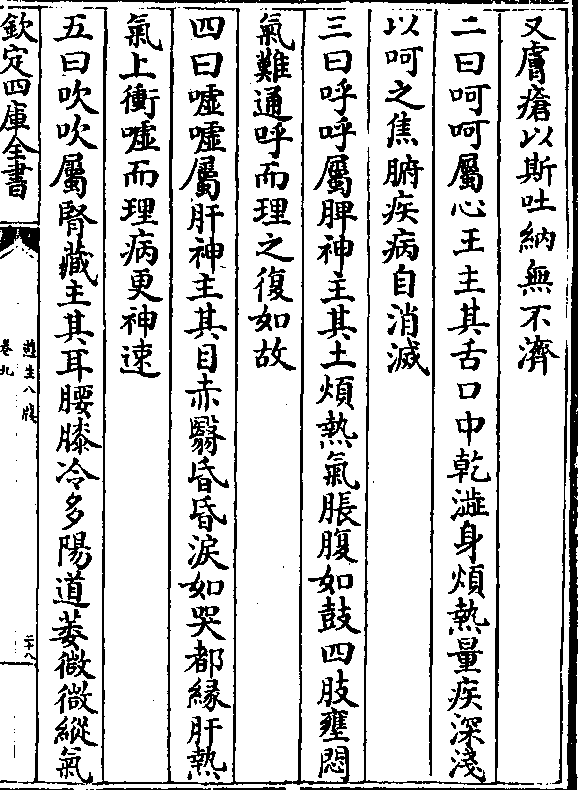 又膚瘡以斯吐納無不濟
二曰呵呵屬心王主其舌口中乾澁身煩熱量疾深淺
以呵之焦腑疾病自消滅
三曰呼呼屬脾神主其土煩熱氣脹腹如鼓四肢壅悶
氣難通呼而理之復如故
四曰噓噓屬肝神主其目赤翳昏昏淚如哭都緣肝熱
氣上衝噓而理病更神速
五曰吹吹屬腎藏主其耳腰膝冷多陽道萎微微縱氣
欽定四庫全書
遵生八牋
卷九
二十八